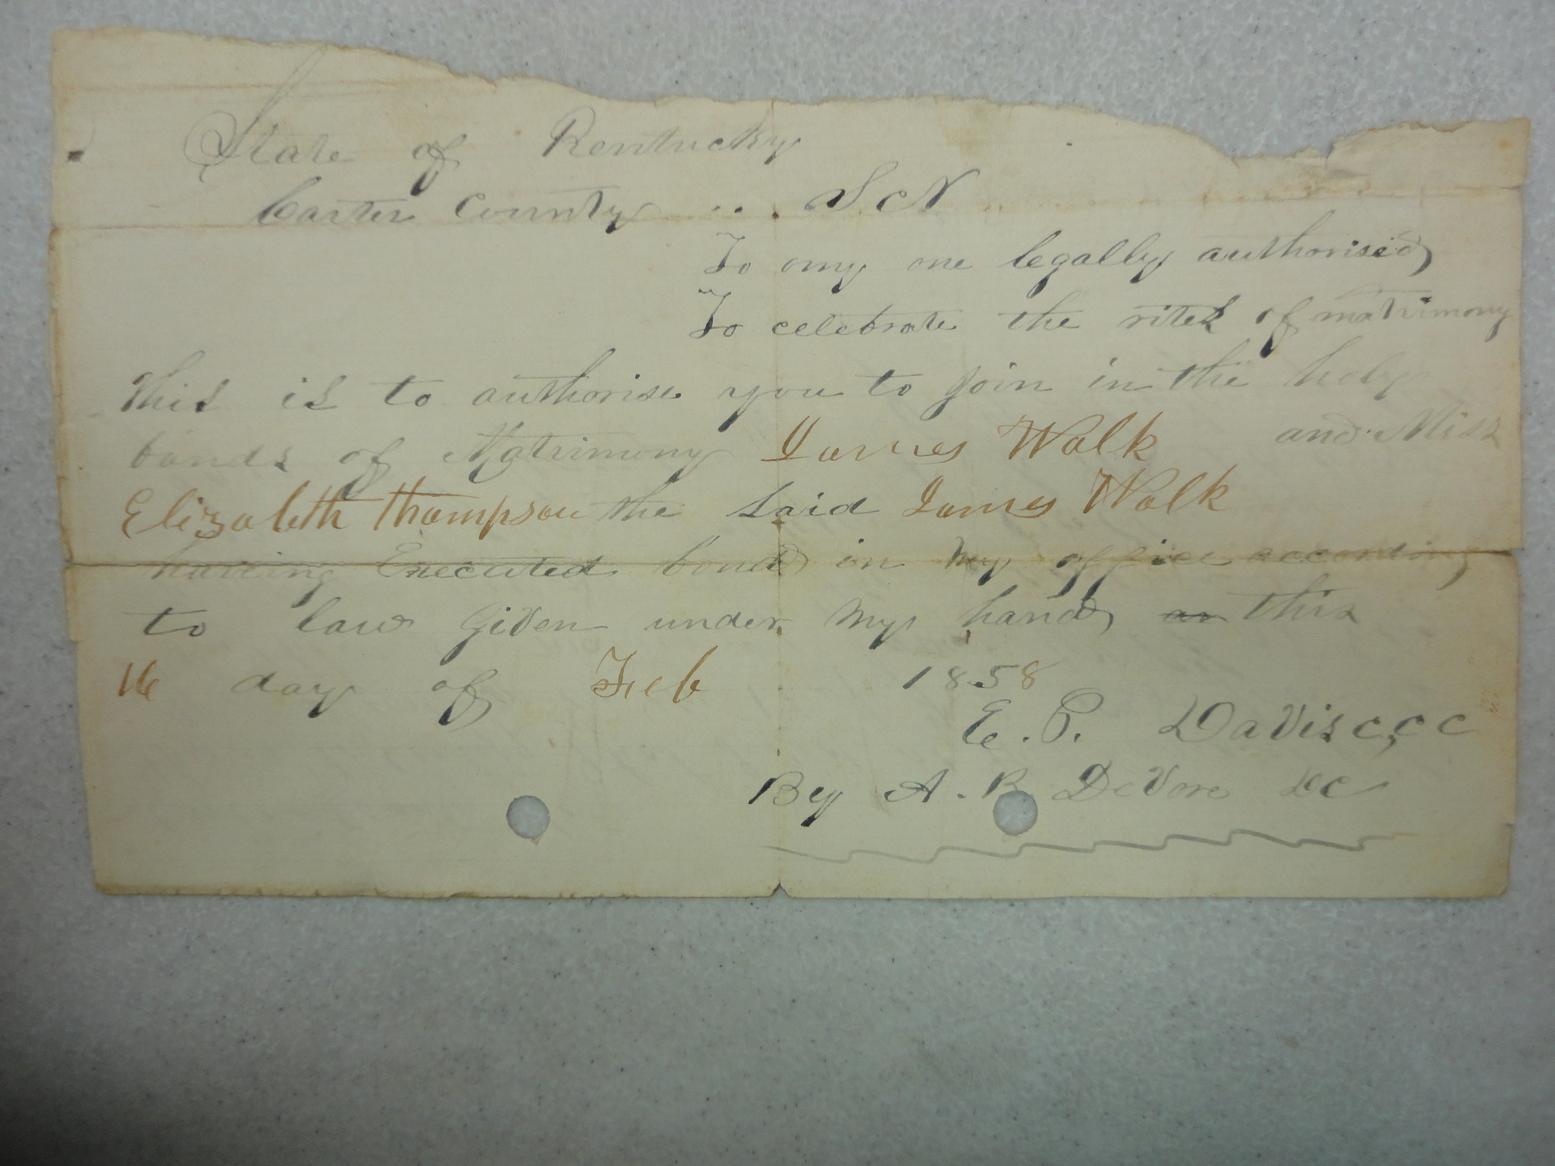 State of Kentucky
Carter County .. Sct
To any one legally authorised
To celebrate the rites of matrimony
This is to authorise you to join in the holy
bonds of Matrimony James Walk and Miss
Elizabeth Thompson the said James Walk
having Executed bond in my office according
to law Given under my hand, as this
16 day of Feb 1858
E. P. Davis c,c c
By A. R DeVore DC